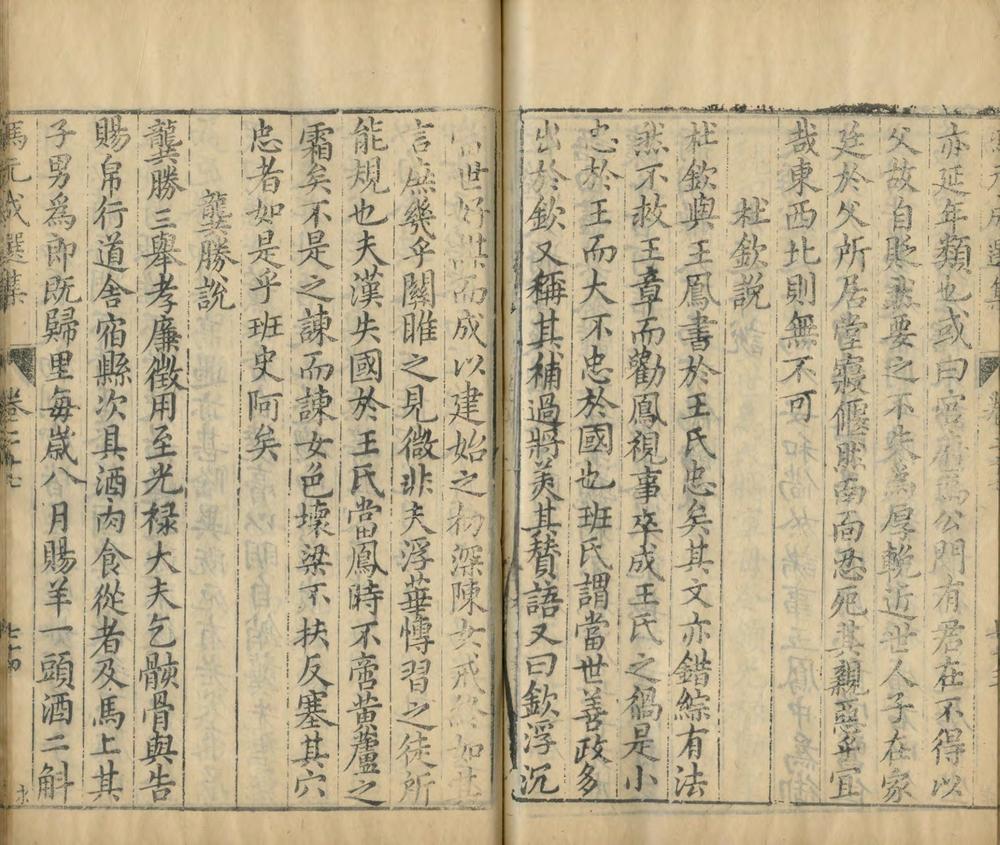 亦延年類也或曰官衙爲公門有君在不得以
父故自貶然要之不失爲厚輓近世人子在家
廷於父所居堂寢偃然南面忍死其親惡乎宜
哉東西北則無不可
杜欽說
杜欽與王鳳書於王氏忠矣其文亦錯綜有法
然不救王章而勸鳳視事卒成王氏之禍是小
忠於王而大不忠於國也班氏謂當世善政多
出於欽又稱其補過將美其賛語又曰欽浮沉
當世好謀而成以建始之初深陳女戒終如其
言庶幾乎關雎之見微非夫浮華慱習之徒所
能規也夫漢失國於王氏當鳳時不啻黃蘆之
霜矣不是之諫而諫女色壞梁不扶反塞其穴
忠者如是乎班史阿矣
龔勝說
龔勝三舉孝廉徵用至光祿大夫乞骸骨與告
賜帛行道舍宿縣次具酒肉食從者及馬上其
子男爲郎既歸里每歲八月賜羊一頭酒二斛
馮元成選集
卷二十七
七十四